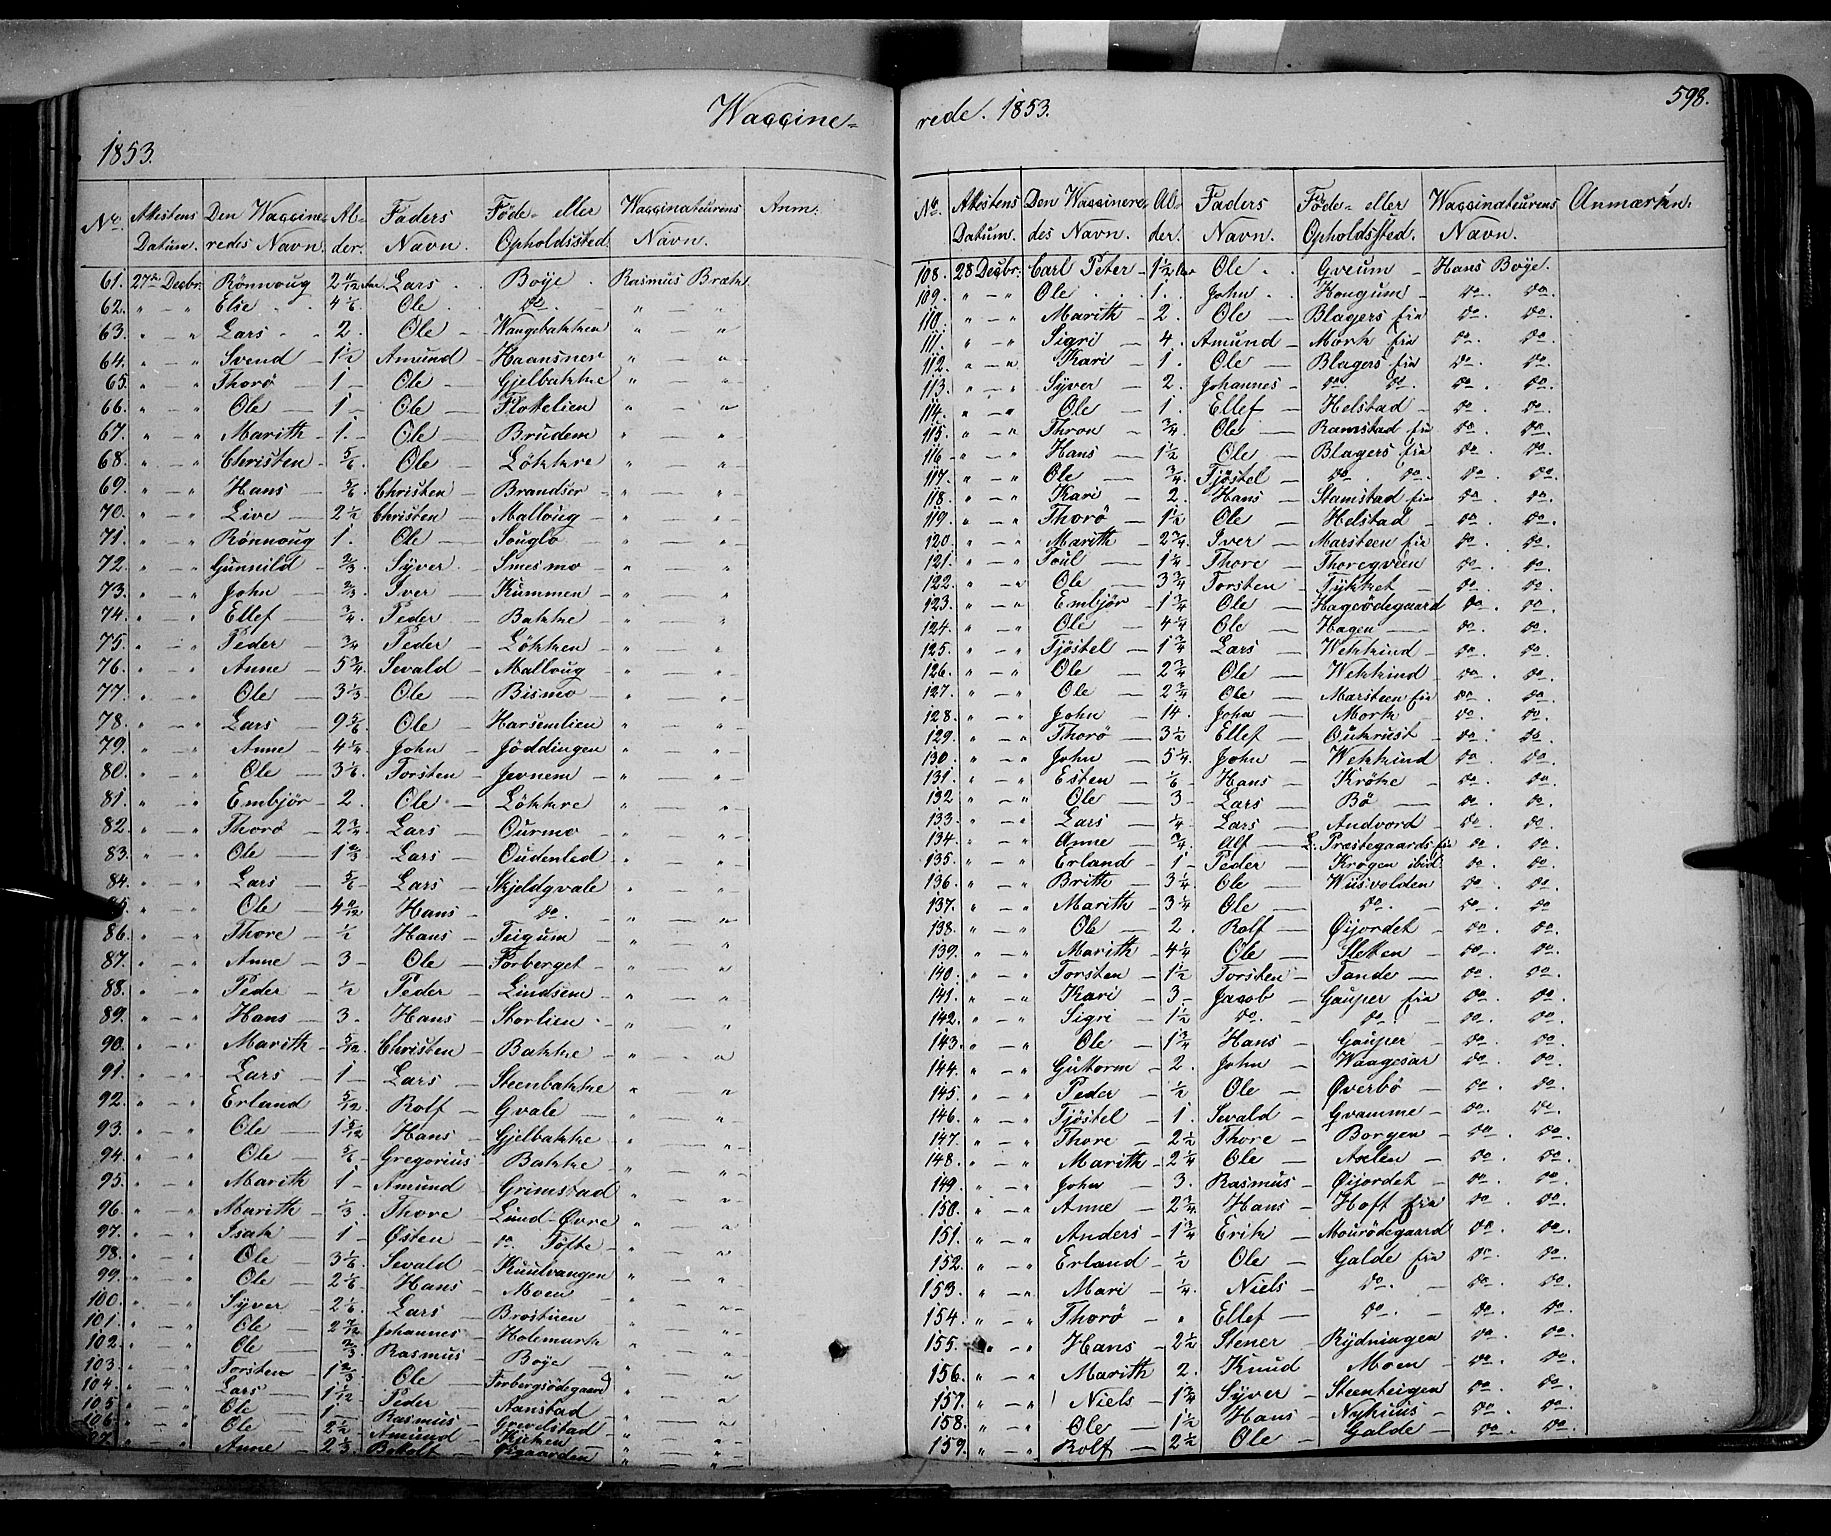 598.
Waccine= rede. 1853.
1853.
No. Attestens Datum. Den Waccineredes Navn. Alder. Faders Navn. Föde- eller Opholdssted. Waccinateurens Navn. Anm:
61. 27de Decbr. Rönnoug 2 11/12 Aar. Lars Böye Rasmus Bræk
62. " - " Else 4 1/6 Ole do " - "
63. " - " Lars 2. Ole Wangebakken " - "
64. " - " Svend 1 1/2 Amund Haansner " - "
65. " - " Thorö 1 Ole Gjelbakke " - "
66. " - " Ole 1 Ole Flotelien " - "
67. " - " Marith 1. Ole Brudem " - "
68. " - " Christen 5/6 Ole Lökkre " - "
69. " - " Hans 5/6 Christen Brandser " - "
70. " - " Live 2 1/2 Christen Malloug " - "
71. " - " Rönnoug 1. Ole Souglo " - "
72. " - " Gunnild 2/3 Syver Smesmo " - "
73. " - " John 2/3 Iver Kummen " - "
74. " - " Ellef 3/4 Peder Bakke " - "
75. " - " Peder 3/4 Peder Lökken " - "
76. " - " Anne 5 3/4 Sevald Malloug " - "
77. " - " Ole 3 1/3 Ole Bismo " - "
78. " - " Lars 9 5/6 Ole Harsemlien " - "
79. " - " Anne 4 1/4 John Jöddingen " - "
80. " - " Ole 3 1/6 Torsten Jevnem " - "
81. " - " Embjör 2 Ole Lökkre " - "
82. " - " Thorö 2 3/4 Lars Ourmo " - "
83. " - " Ole 1 2/3 Lars Oudenled " - "
84. " - " Lars 5/6 Lars Skjeldqvale " - "
85. " - " Ole 4 11/12 Hans do " - "
86. " - " Thore 1/2 Hans Teigum " - "
87. " - " Anne 3 Ole Forberget " - "
88. " - " Peder 1/2 Peder Lindsem " - "
89. " - " Hans 3 Hans Storlien " - "
90. " - " Marith 5/12 Christen Bakke " - "
91. " - " Lars 1 Lars Steenbakke " - "
92. " - " Erland 5/12 Rolf Gvale " - "
93. " - " Ole 1 5/12 Hans Gjelbakke " - "
94. " - " Ole 5/6 Gregorius Bakke " - "
95. " - " Marith 1 Amund Grimstad " - "
96. " - " Marith 1/3 Thore Lund-Øvre " - "
97. " - " Isak 1 Østen do Töfte " - "
98. " - " Ole 3 1/6 Sevald Kuulvangen " - "
99. " - " Ole 2 1/6 Hans Moen " - "
100. " - " Syver 2 1/6 Lars Brostuen " - "
101. " - " Ole 2 7/12 Johannes Holemark " - "
102. " - " Ole 2/3 Rasmus Böye " - "
103. " - " Torsten 1 2/3 Ole Forbergsödegaard " - "
104. " - " Lars 1 1/12 Peder Aanstad " - "
105. " - " Ole 1 Rasmus Grevelstad " - "
106. " - " Ole 2 1/2 Amund " - "
107. " - " Anne 2 1/3 " - "
No. Attestens Datum. Den Waccineredes Navn. Alder. Faders Navn. Föde- eller Opholdssted. Waccinateurens Navn. Anmærkn:
108. 28 Decbr. Carl Peter 1 1/2 Aar Ole Gveum Hans Boye.
109. " - " Ole 1. John Hougum do. do.
110. " - " Marith 2. Ole Blagers fin do. do.
111. " - " Sigri 4. Amund Mork fin do. do.
112. " - " Kari 1. Ole Blagers fin do. do.
113. " - " Syver 2. Johannes do. do. do. do.
114. " - " Ole 1. Ellef Helstad do. do.
115. " - " Thron 3/4 Ole Ramstad fin do. do.
116. " - " Hans 1 1/2 Ole Blagers fin do. do.
117. " - " Ole 3/4. Tjöstel do. do. do. do.
118. " - " Kari 2. Hans Stamstad fin do. do.
119. " - " Thorö 1 1/2 Ole Helstad do. do.
120. " - " Marith 2 3/4. Iver Marsteen fin do. do.
121. " - " Joul 1 1/4 Thore Thoregveen do. do.
122. " - " Ole 3 3/4 Torsten Tykket do. do.
123. " - " Embjör 1 3/4 Ole Hageödegaard do. do.
124. " - " Ole 4 1/4 Ole Hagen do. do.
125. " - " Tjöstel 1 3/4 Lars Wekkind do. do.
126. " - " Ole 2 3/4 Ole Wekkind do. do.
127. " - " Ole 2 3/4 Ole Marsteen fin do. do.
128. " - " John 14. John Mork do. do.
129. " - " Thorö 3 1/2 Ellef Oukrust do. do.
130. " - " John 5 1/4 John Wekkind do. do.
131. " - " Esten 1/6 Hans Kröke do. do.
132 " - " Ole 3 Lars Bö do. do.
133. " - " Lars 1/4 Lars Andvord do. do.
134. " - " Anne 3/4. Alf L. Præstegaards fin do. do.
135. " - " Erland 1 Peder Krogen ibid. do. do.
136. " - " Brith 3 1/4 Ole Wiisvolden do. do.
137. " - " Marith 3 1/4 Ole do. do. do.
138. " - " Ole 2. Rolf Øijordet do. do.
139. " - " Marith 4 1/4 Ole Sletten do. do.
140. " - " Torsten 1 1/2 Torsten Tande do. do.
141. " - " Kari 3 Jacob Gauper fin do. do.
142. " - " Sigri 1 1/2 do. do. do. do.
143. " - " Ole 1 3/4 Hans Gauper do. do.
144. " - " Guttorm 2. John Waagesar do. do.
145. " - " Peder 1/2 Ole Øverbö do. do.
146. " - " Tjöstel 1. Sevald Gvamme do. do.
147. " - " Thore 2 1/2 Thore Borgen do. do.
148. " - " Marith 2 1/4 Ole Aselen do. do.
149. " - " John 3. Rasmus Øijordet do. do.
150. " - " Anne 2 3/4 Hans Hoft fin do. do.
151. " - " Anders 1 3/4 Erik Mourödegaard do. do.
152. " - " Erland 1/2 Ole Galde fin do. do.
153. " - " Mari 1/4 Niels do. do. do.
154. " - " Thorö " Ellef do. do. do.
155. " - " Hans 2 1/2 Stener Rydningen do. do.
156. " - " Marith 2. Knud Moen do. do.
157. " - " Niels 1 3/4 Syver Steenteigen do. do.
158. " - " Ole 1 1/2 Hans Nyhuus do. do.
159. " - " Rolf 2 1/2 Ole Galde do. do.